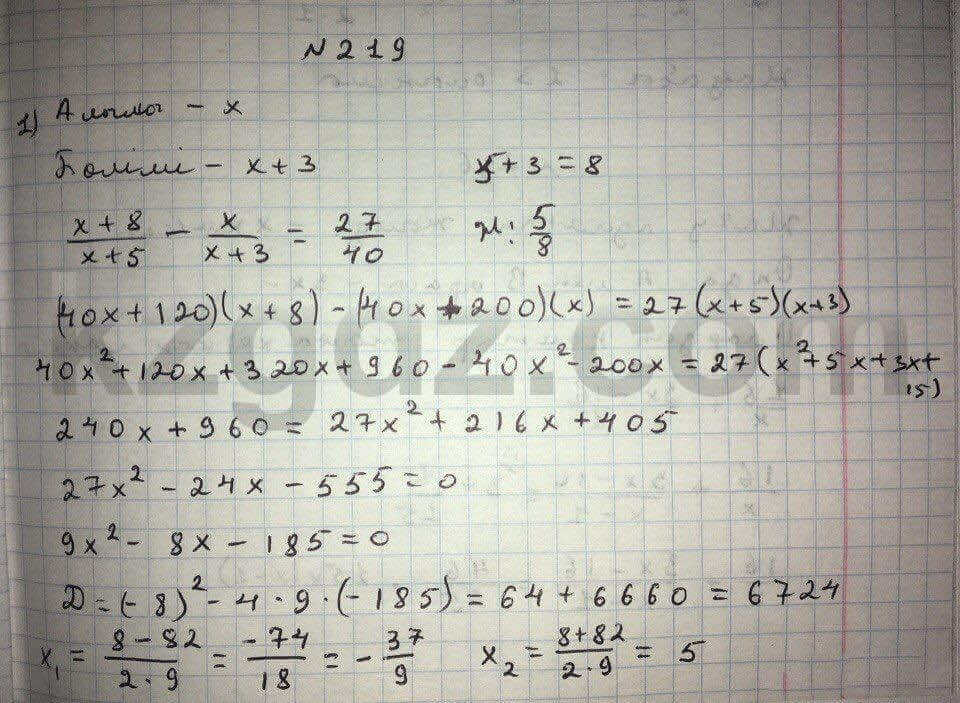 N 219
1) Алымы - x
Бөлімі - x + 3     5 + 3 = 8
(x + 8)/(x + 5) - x/(x + 3) = 27/40     Ж: 5/8
(40x + 120)(x + 8) - (40x + 200)(x) = 27(x + 5)(x + 3)
40x² + 120x + 320x + 960 - 40x² - 200x = 27(x² + 5x + 3x +
15)
240x + 960 = 27x² + 216x + 405
27x² - 24x - 555 = 0
9x² - 8x - 185 = 0
D = (-8)² - 4 · 9 · (-185) = 64 + 6660 = 6724
x₁ = (8 - 82)/(2 · 9) = -74/18 = -37/9     x₂ = (8 + 82)/(2 · 9) = 5
kzgdz.com